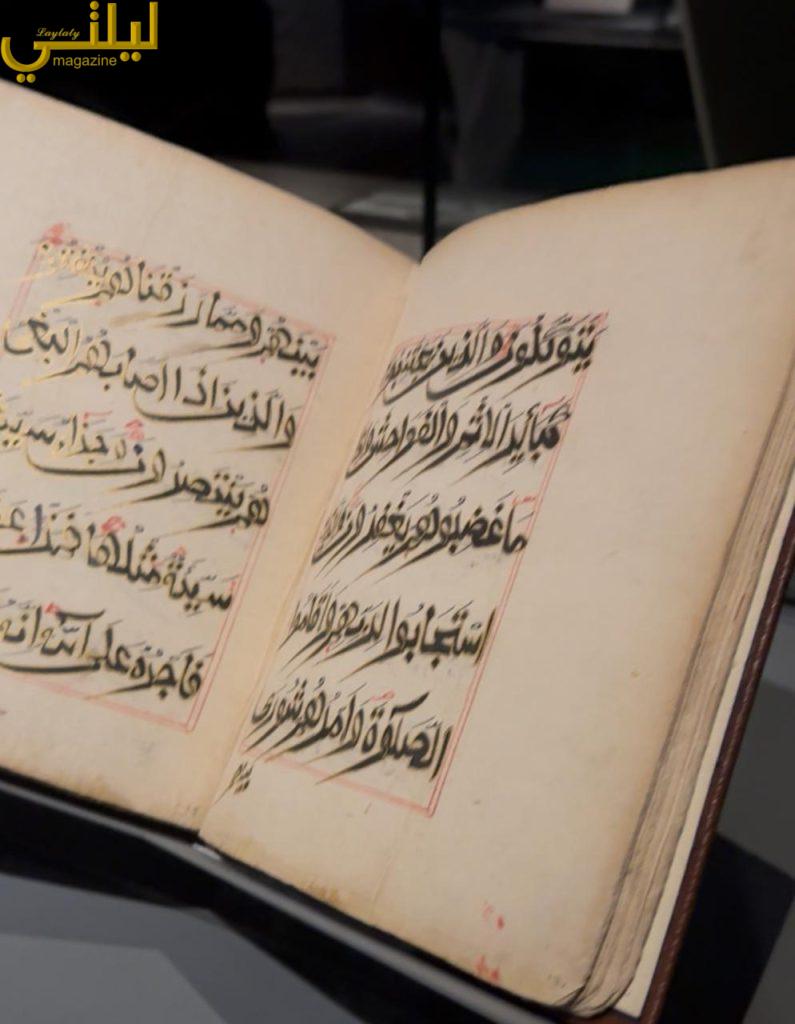 ليلتي
Laylaty
magazine
يتوكلون والذين يجتنبون
كبائر الاثم والفواحش واذا
ما غضبوا هم يغفرون والذين
استجابوا لربهم واقاموا
الصلوة وامرهم شورى
بينهم
بينهم ومما رزقناهم ينفقون
والذين اذا اصابهم البغي
هم ينتصرون وجزاء سيئة
سيئة مثلها فمن
فاجره على الله انه